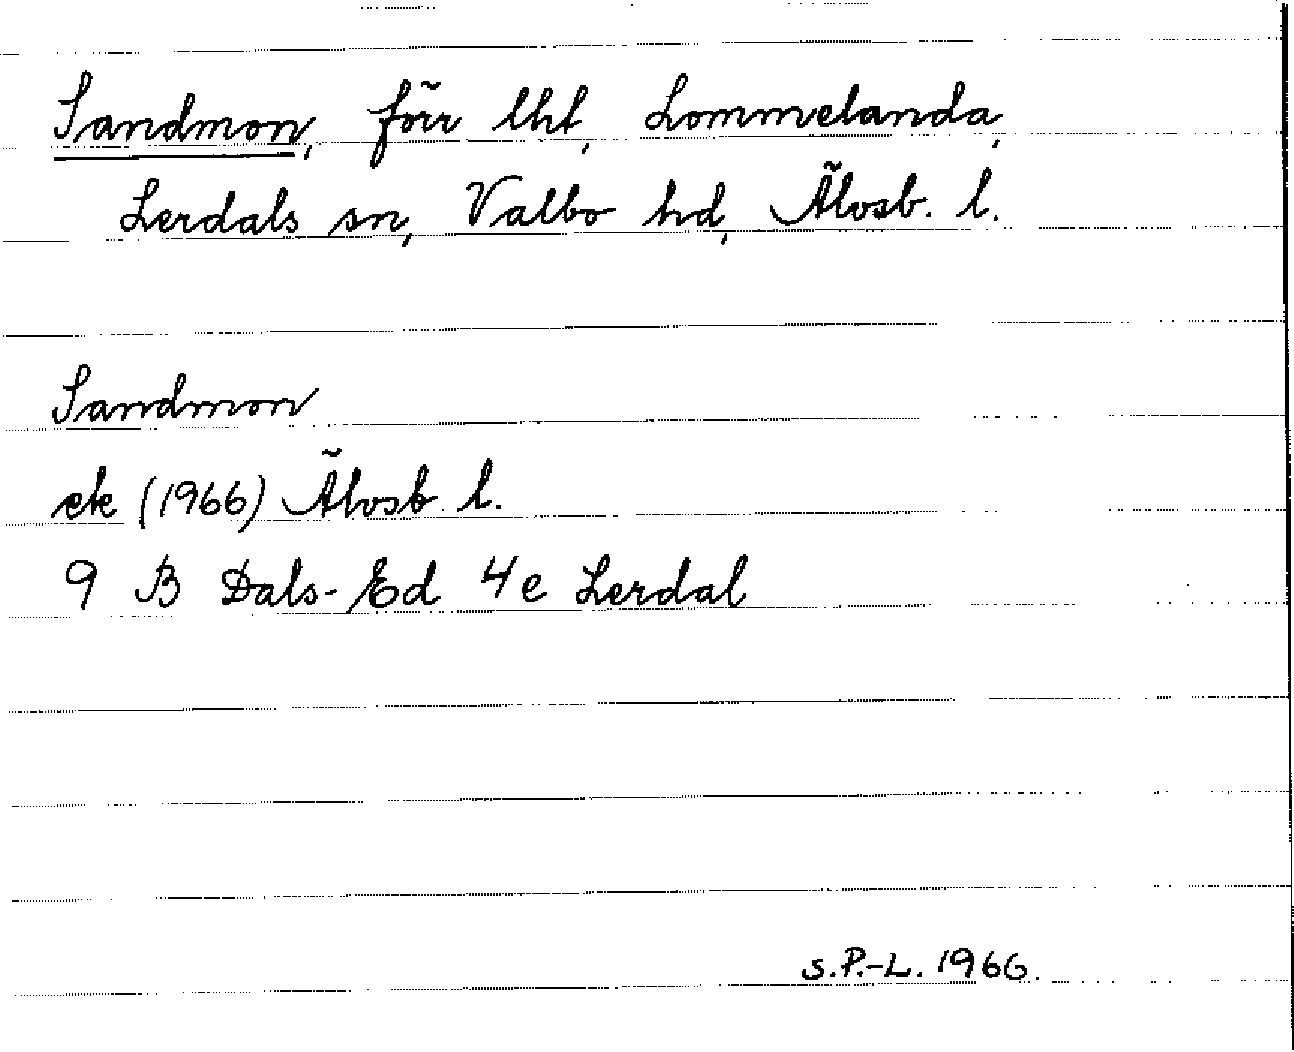 Sandmon, förr lht, Lommelanda,
Lerdals sn, Valbo hd, Älvsb. l.
Sandmon
ek (1966) Älvsb. l.
9 B Dals-Ed 4e Lerdal
S.P.-L. 1966.